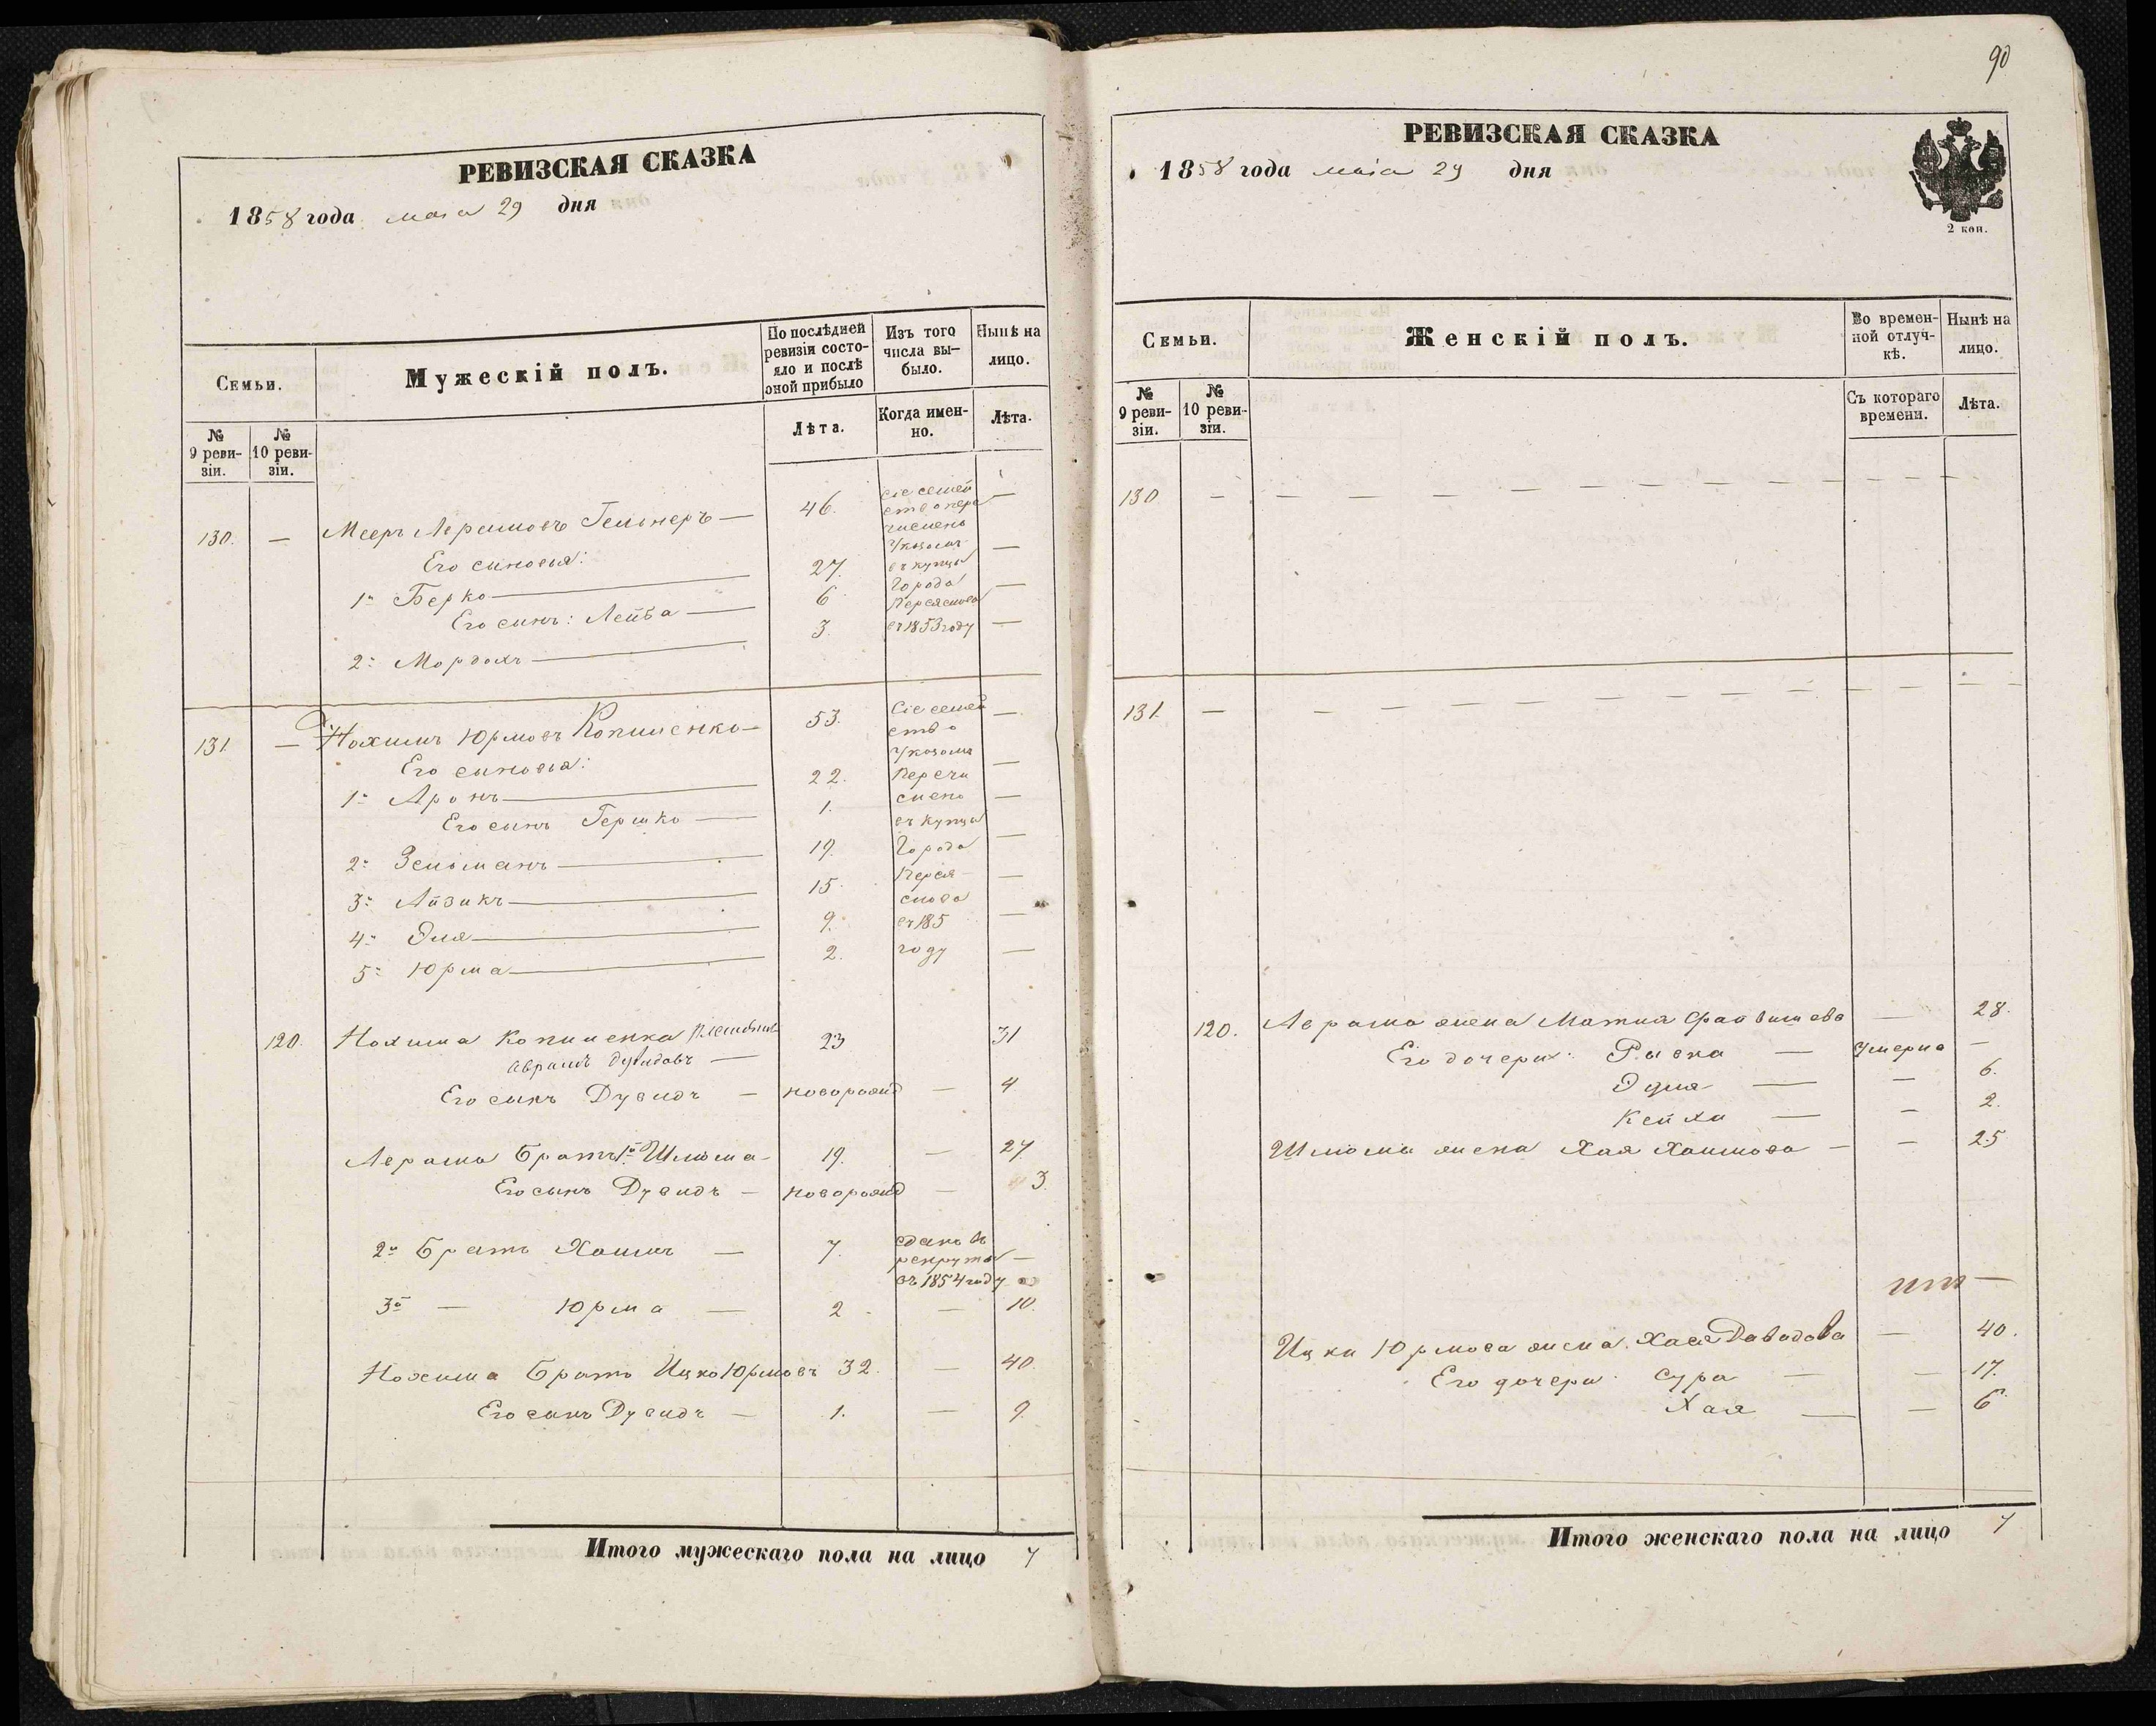 РЕВИЗСКАЯ СКАЗКА
1858 года мая 29 дня
Семьи.
Мужескій полъ.
По послѣдней ревизіи состояло и послѣ оной прибыло
Изъ того числа выбыло.
Нынѣ на лицо.
№ 9 ревизіи.
№ 10 ревизіи.
Лѣта.
Когда именно.
Лѣта.
130. — Мееръ Аврамовъ — 46. Сіе семейство перечислено указомъ въ купцы города Переяслова въ 1853 году —
Его сыновья:
1й Берко — 27. —
Его сынъ: Лейба — 6 —
2й Мордохъ — 3. —
131. — Нохимъ Юрмовъ Копиленко — 53. Сіе семейство указомъ перечислено въ купцы города Переяслова въ 185 году —
Его сыновья:
1й Аронъ — 22. —
Его сынъ Гершко — 1. —
2й Зельманъ — 19. —
3й Айзикъ — 15. —
4й Эля — 9. —
5й Юрма — 2. —
120. Нохима Копиленка племянникъ
Аврамъ Дувидовъ — 23 31
Его сынъ Дувидъ — новорожд — 4
Аврама братъ 1й Шлёма — 19. — 27
Его сынъ Дувидъ — новорожд — 3.
2й братъ Хаимъ — 7. сданъ въ рекруты въ 1854 году —
3й — Юрма — 2 — 10.
Нохима братъ Ицко Юрмовъ 32. — 40.
Его сынъ Дувидъ — 1. — 9.
Итого мужескаго пола на лицо 7
90
РЕВИЗСКАЯ СКАЗКА
1858 года маія 29 дня
2 коп.
Семьи.
Женскій полъ.
Во временной отлучкѣ.
Нынѣ на лицо.
№ 9 ревизіи.
№ 10 ревизіи.
Съ котораго времени.
Лѣта.
130 — — — — — — — —
131. — — — — — — — —
120. Аврама жена Матля — 28.
Его дочери: Рывка — умерла —
Эдля — — 6.
Кейла — — 2.
Шлёмы жена Хая Хаимова — — 25
Ицки Юрмова жена Хася Давидова — 40.
Его дочери: Сура — — 17.
Хая — — 6.
Итого женскаго пола на лицо 7